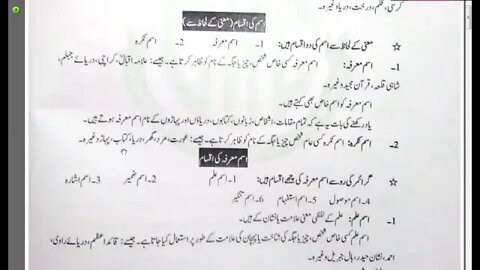 کرسی، قلم، درخت، دریا وغیرہ۔
اسم کی اقسام (معنی کے لحاظ سے)
☆ معنی کے لحاظ سے اسم کی دو اقسام ہیں: 1۔ اسم معرفہ 2۔ اسم نکرہ
1۔ اسم معرفہ: اسم معرفہ کسی خاص شخص، چیز یا جگہ کے نام کو ظاہر کرتا ہے۔ جیسے: علامہ اقبالؒ، کراچی، دریائے جہلم،
شاہی قلعہ، قرآن مجید وغیرہ۔
اسم معرفہ کو اسم خاص بھی کہتے ہیں۔
یاد رکھنے کی بات یہ ہے کہ تمام مقامات، اشخاص، زبانوں، کتابوں، دریاؤں اور پہاڑوں کے نام اسم معرفہ ہوتے ہیں۔
2۔ اسم نکرہ: اسم نکرہ کسی عام شخص، چیز یا جگہ کے نام کو ظاہر کرتا ہے۔ جیسے: عورت، مرد، گھر، دریا، کتاب، پہاڑ وغیرہ۔
اسم معرفہ کی اقسام
☆ گرائمر کی رو سے اسم معرفہ کی چھے اقسام ہیں: 1۔ اسم علم 2۔ اسم ضمیر 3۔ اسم اشارہ
4۔ اسم موصول 5۔ اسم استفہام 6۔ اسم تنکیر
1۔ اسم علم: علم کے لفظی معنی علامت یا نشان کے ہیں۔
اسم علم کسی خاص شخص، چیز یا جگہ کی شناخت یا پہچان کی علامت کے طور پر استعمال کیا جاتا ہے۔ جیسے: قائد اعظم، دریائے راوی،
احمد، نشان حیدر، بال جبریل وغیرہ۔